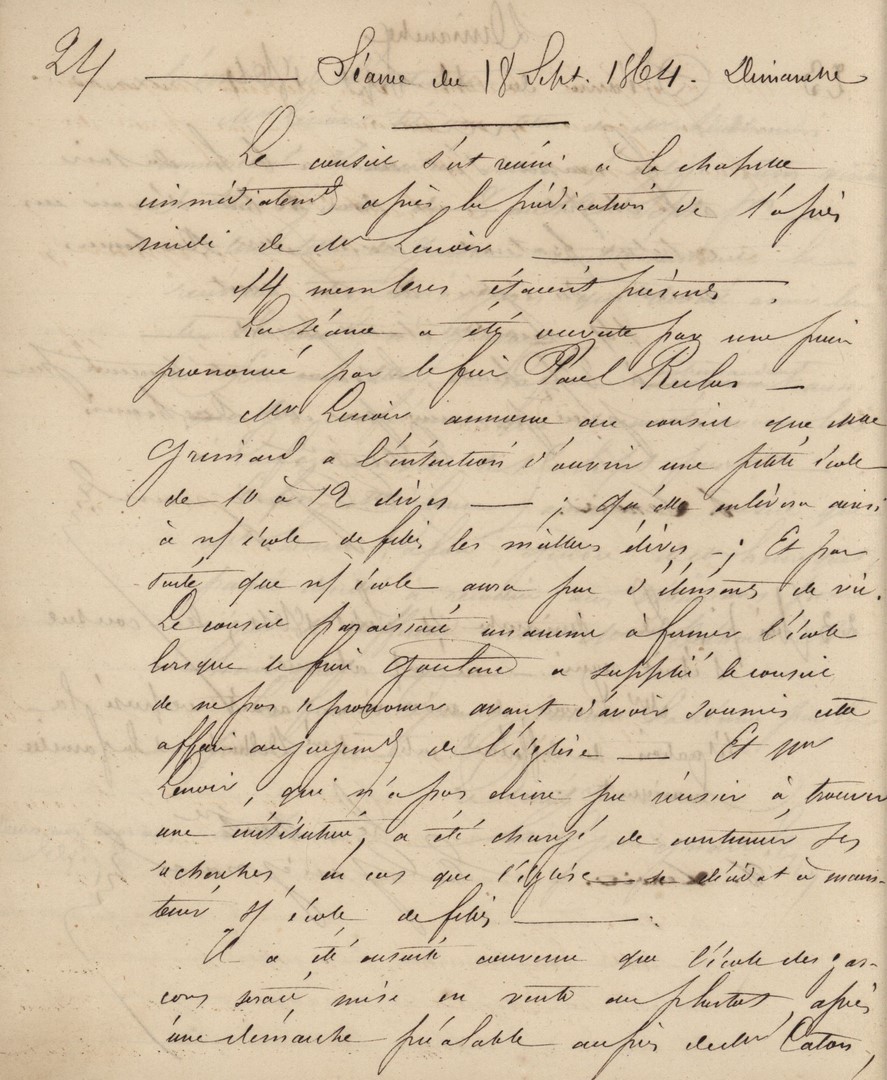 24 Séance du 18 Sept. 1864. Dimanche
Le conseil s'est réuni à la chapelle
immédiatemt après la prédication de l'après
midi de Mr Lenoir
14 membres étaient présents.
La séance a été ouverte par une prière
prononcé par le frère Paul Reclus —
Mr Lenoir annonce au conseil que Mme
Grimard a l'intention d'ouvrir une petite école
de 10 à 12 élèves — ; qu'elle enlèvera ainsi
à nf école de filles les meilleurs élèves — ; Et par
suite que nf école aura peu d'éléments de vie.
Le conseil paraissait unanime à fermer l'école
lorsque le frère Goulard a supplié le conseil
de ne pas se prononcer avant d'avoir soumis cette
affaire au jugemt de l'église — Et Mr
Lenoir, qui n'a pas encore pu réussir à trouver
une institutrice, a été chargé de continuer ses
recherches, en cas que l'église se décidat à main-
tenir nf école de filles —
Il a été ensuite convenu que l'école des gar-
çons serait mise en vente au plustot, après
une démarche préalable auprès de Mr Caton,